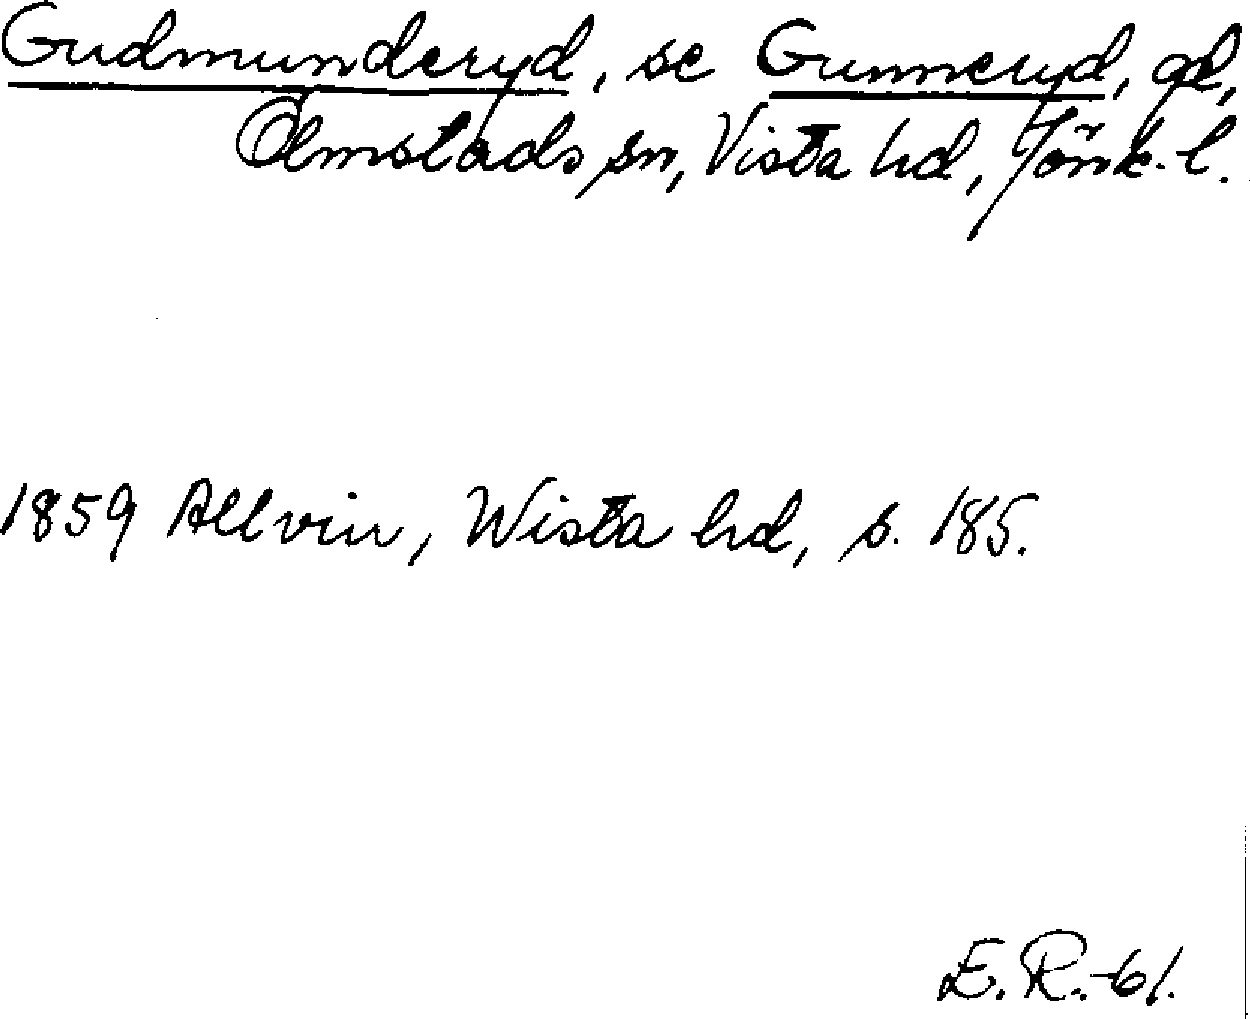 Gudmunderyd, se Gunneryd, gd,
Ölmstads sn, Vista hd, Jönk. l.
1859 Allvin, Wista hd, s. 185.
E. R. -61.